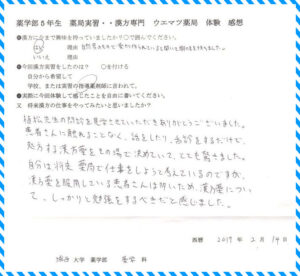 薬学部5年生 薬局実習・・漢方専門 ウエマツ薬局 体験 感想
●漢方に今まで興味を持っていましたか?○で囲んでください。
はい 理由
いいえ 理由
●今回漢方実習をしたのは? ○を付ける
自分から希望して
学校、または実習の指導薬剤師に言われて。
●実際に今回体験して感じたことを自由に書いてください。
又 将来漢方の仕事をやってみたいと思いましたか?
植松先生の問診を見学させていただきありがとうございました。
患者さんに触れることなく、話をしたり、舌診をするだけで、
処方する漢方薬をその場で決めていて、とても驚きました。
自分は将来薬局で仕事をしようと考えているのですが、
漢方薬を服用している患者さんは多いため、漢方薬につい
て、しっかりと勉強をするべきだと感じました。
西暦 2019年 2月 14日
大学 薬学部 薬学 科